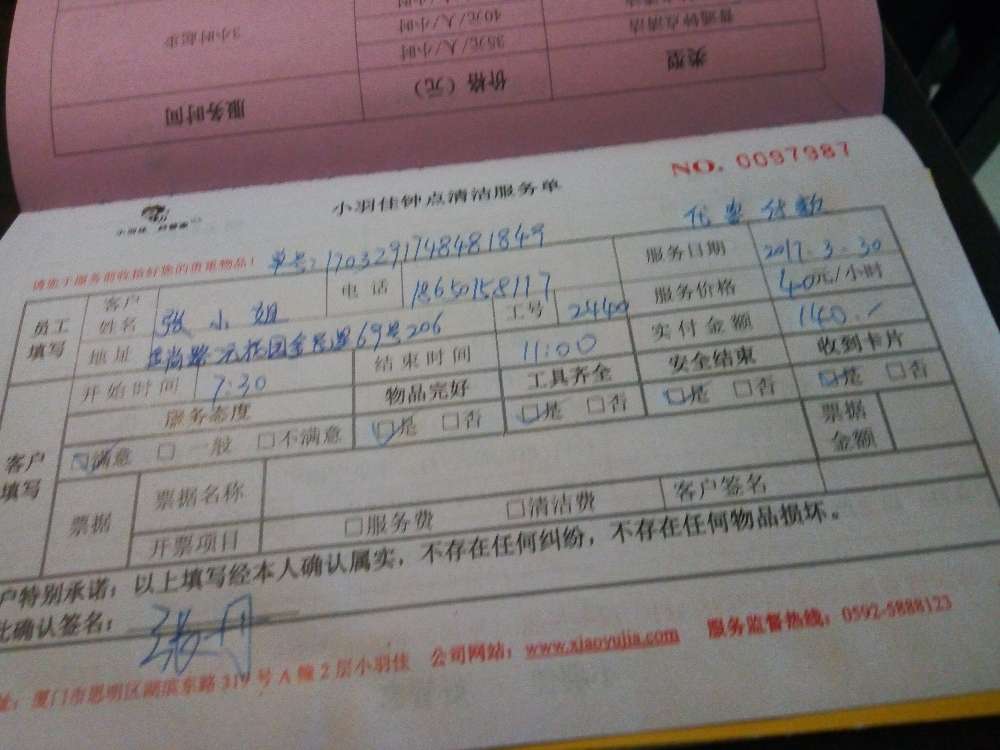 普通钟点清洁
40元/人/小时
3小时起步
35元/人/小时
类型
价格（元）
服务时间
NO. 0097987
小羽佳钟点清洁服务单
小羽佳
单号：1703291748481849
请您于服务前收拾好您的贵重物品！
员工填写
客户姓名 张小姐 电话 18650158117 服务日期 2017.3.30
地址 69号206 工号 2440 服务价格 40元/小时
开始时间 7:30 结束时间 11:00 实付金额 1140.
服务态度 物品完好 工具齐全 安全结束 收到卡片
客户填写
□满意 □一般 □不满意 □是 □否 □是 □否 □是 □否 □是 □否
票据 票据名称 票据金额
开票项目 □服务费 □清洁费 客户签名
户特别承诺：以上填写经本人确认属实，不存在任何纠纷，不存在任何物品损坏。
此确认签名：
址：厦门市思明区湖滨东路319号A幢2层小羽佳 公司网站：www.xiaoyujia.com 服务监督热线：0592-5888123